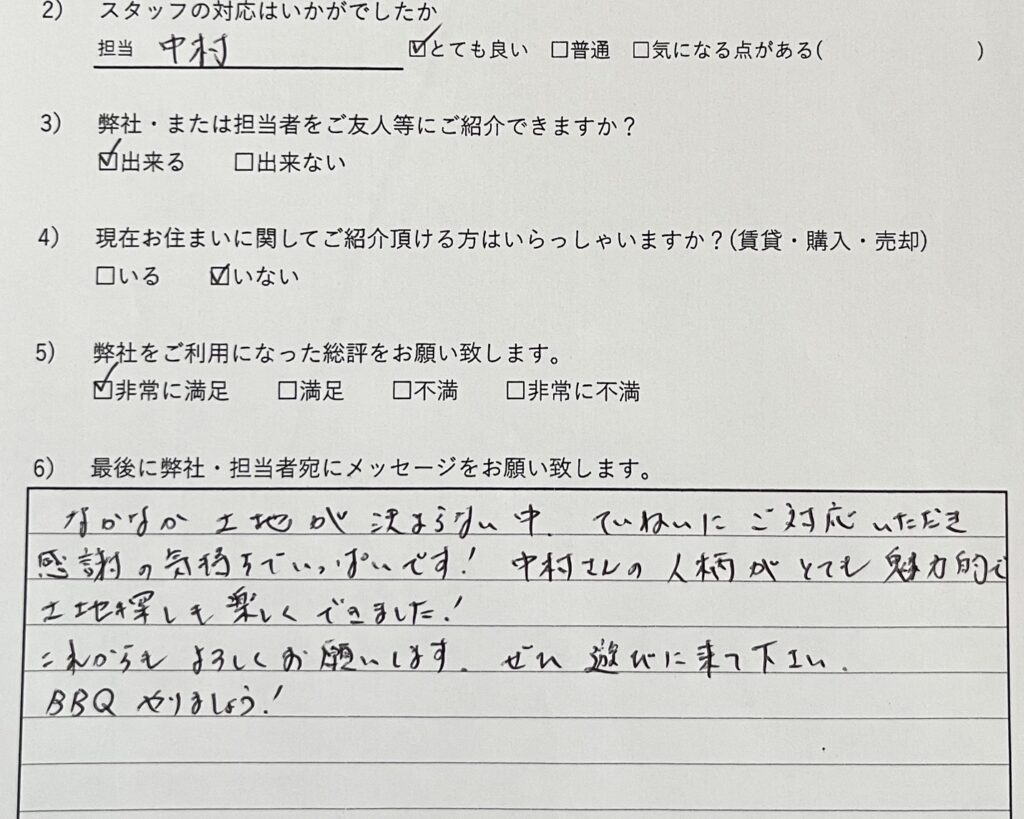 2) スタッフの対応はいかがでしたか
担当 中村 ☑とても良い □普通 □気になる点がある( )
3) 弊社・または担当者をご友人等にご紹介できますか？
☑出来る □出来ない
4) 現在お住まいに関してご紹介頂ける方はいらっしゃいますか？(賃貸・購入・売却)
□いる ☑いない
5) 弊社をご利用になった総評をお願い致します。
☑非常に満足 □満足 □不満 □非常に不満
6) 最後に弊社・担当者宛にメッセージをお願い致します。
なかなか土地が決まらない中、ていねいにご対応いただき
感謝の気持ちでいっぱいです！ 中村さんの人柄がとても魅力的で
土地探しも楽しくできました！
これからもよろしくお願いします。ぜひ遊びに来て下さい。
BBQ やりましょう！